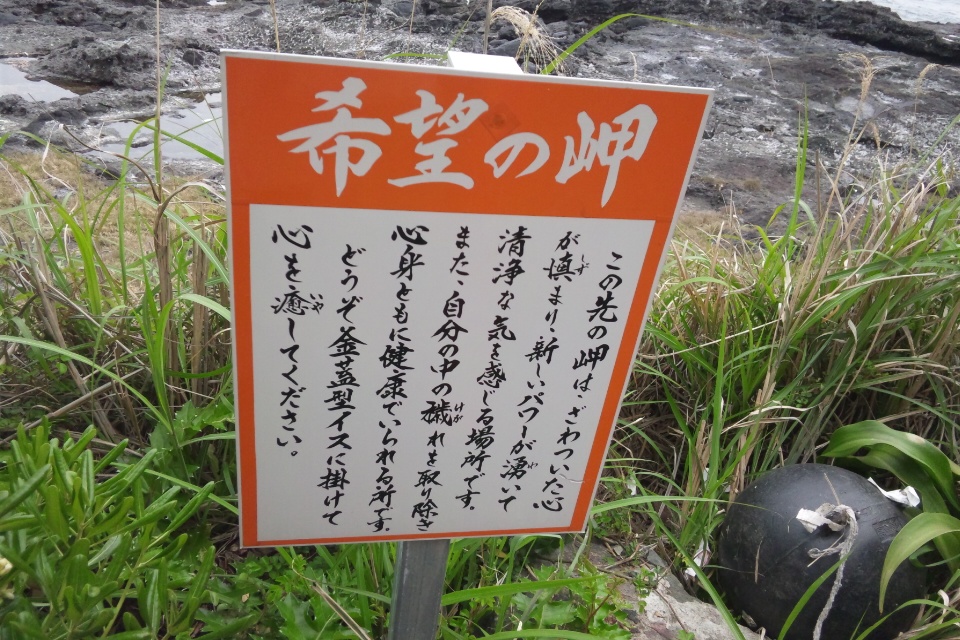 希望の岬
この先の岬は、ざわついた心
が填まり、新しいパワーが湧いて
しず
わ
清浄な気を感じる場所です。
また、自分の中の穢れを取り除き
けが
心身ともに健康でいられる所です。
どうぞ釜蓋型イスに掛けて
心を癒してください。
いや